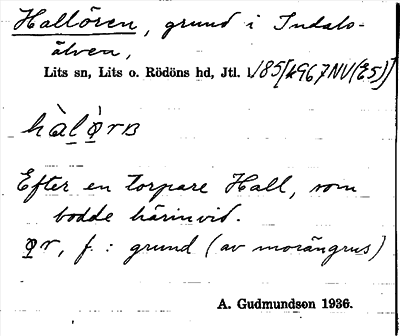 Hallören, grund i Indals-
älven,
Lits sn, Lits o. Rödöns hd, Jtl. 1/85[4967NV(E5)]
hàlø̀rʙ
Efter en torpare Hall, som
bodde härinvid.
ør, f. : grund (av morängrus)
A. Gudmundson 1936.